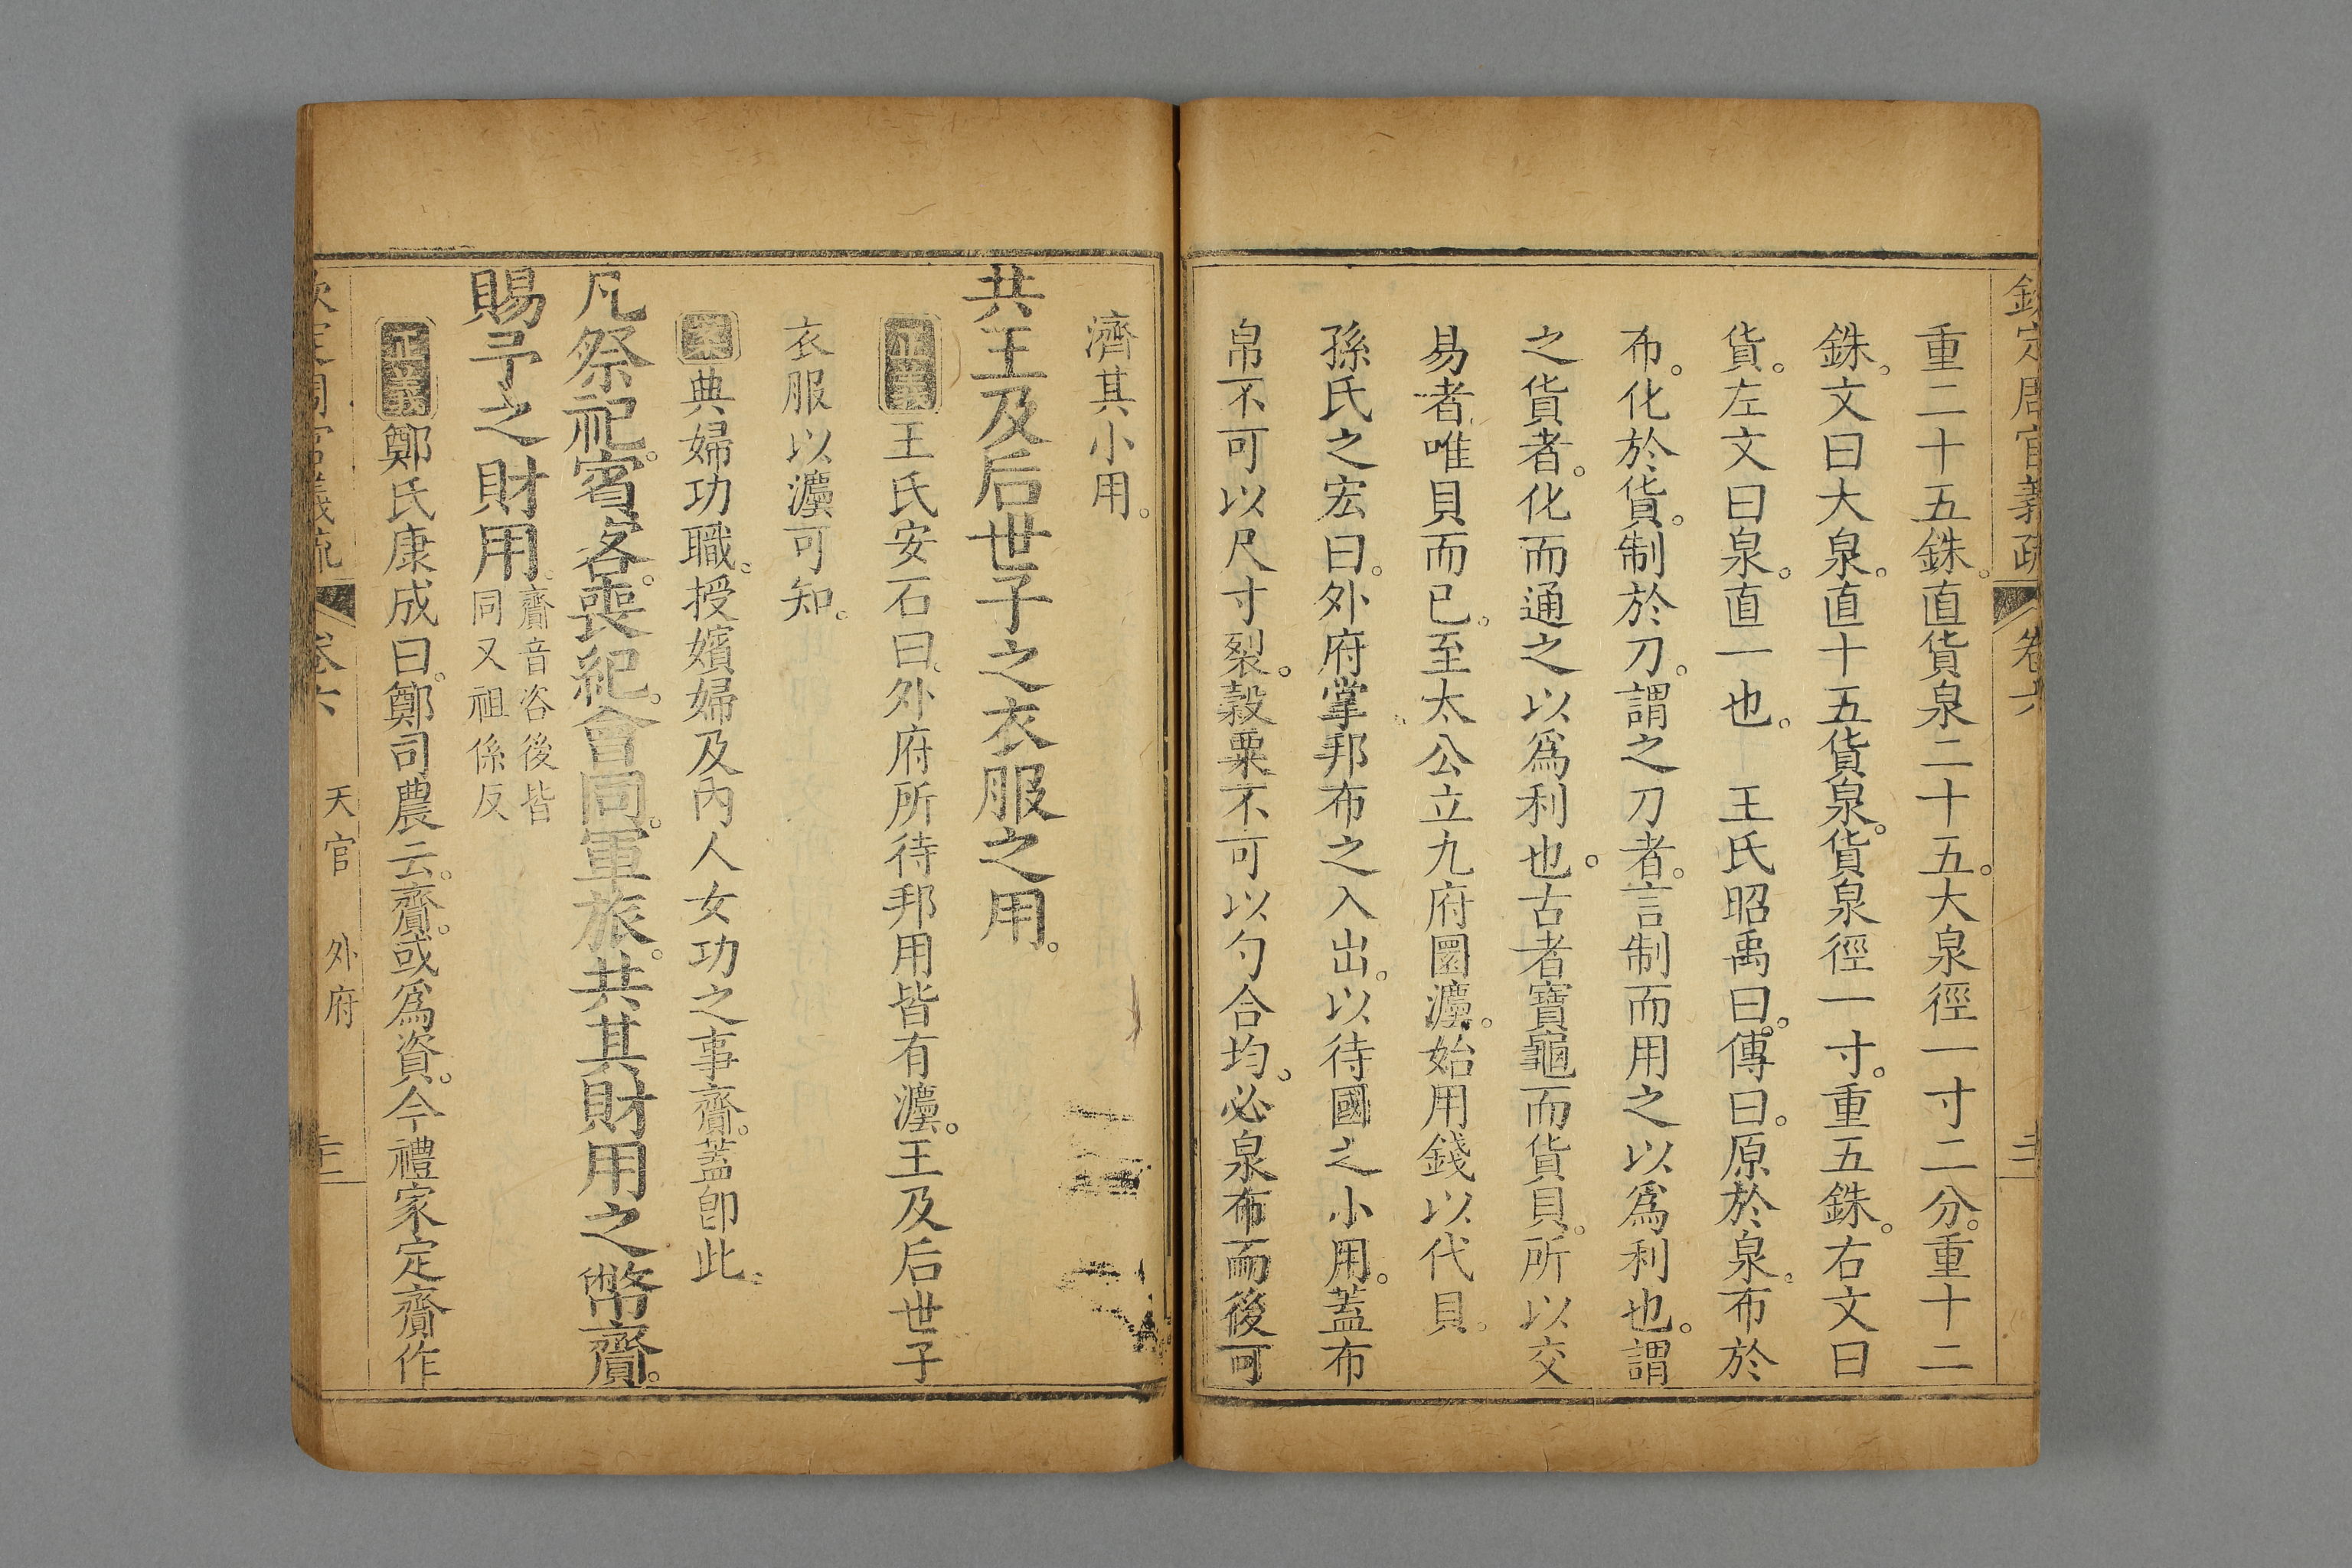 欽定周官義疏 卷六
重二十五銖。直貨泉二十五。大泉徑一寸二分。重十二
銖。文曰大泉。直十五貨泉。貨泉徑一寸。重五銖。右文曰
貨。左文曰泉。直一也。 王氏昭禹曰。傳曰。原於泉。布於
布。化於貨。制於刀。謂之刀者。言制而用之以爲利也。謂
之貨者。化而通之以爲利也。古者寶龜而貨貝。所以交
易者。唯貝而已。至太公立九府圜灋。始用錢以代貝。
孫氏之宏曰。外府掌邦布之入出。以待國之小用。蓋布
帛不可以尺寸裂。榖粟不可以勺合均。必泉布而後可
濟其小用。
共王及后世子之衣服之用。
正義王氏安石曰。外府所待邦用皆有灋。王及后世子
衣服以灋可知。
案典婦功職。授嬪婦及內人女功之事齎。蓋卽此。
凡祭祀。賓客。喪紀。會同。軍旅。共其財用之幣齎。
賜予之財用。齎音咨後皆
同又祖係反
正義鄭氏康成曰。鄭司農云。齎。或爲資。今禮家定齎作
欽定周官義疏 卷六 天官 外府